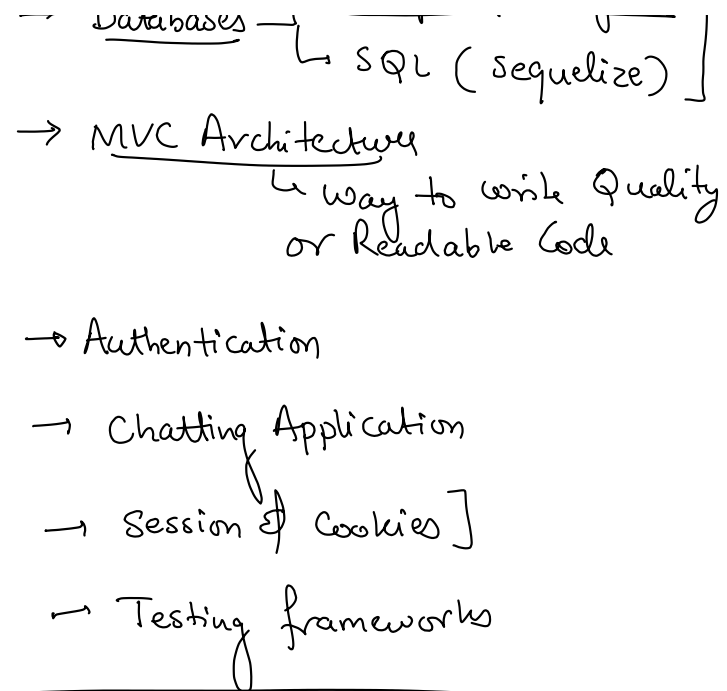 → Databases
↳ SQL ( Sequelize) ]
→ MVC Architecture
↳ way to write Quality
or Readable Code
→ Authentication
→ Chatting Application
→ Session & Cookies ]
→ Testing frameworks